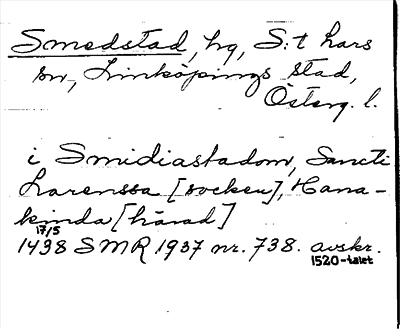 Smedstad, hg, S:t Lars
sn, Linköpings stad,
Österg. l.
i Smidiastadom, Sancti
Larenssa [socken], Hana-
kinda [härad]
17/5
1438 SMR 1937 nr. 738. avskr.
1520-talet